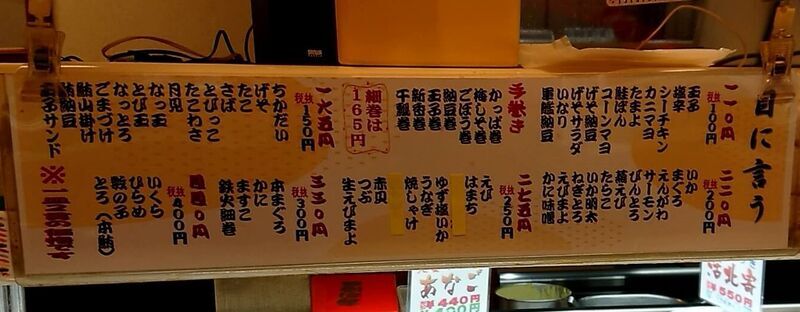 目に言う
一一〇円
税抜100円
玉子
塩辛
シーチキン
カニマヨ
たまよ
鮭ぽん
コーンマヨ
げそ納豆
げそサラダ
いなり
軍艦納豆
手巻き
かっぱ巻
梅しそ巻
ごぼう巻
納豆巻
玉子巻
新香巻
干瓢巻
細巻は
165円
一六五円
税抜150円
ちかだい
げそ
たこ
さば
とびっこ
たこわさ
月見
なっ玉
とび玉
なっとろ
ごまづけ
鮪山掛け
鮪納豆
玉子サンド
二二〇円
税抜200円
いか
まぐろ
えんがわ
サーモン
びんとろ
蒸えび
たらこ
いか明太
ねぎとろ
えびまよ
かに味噌
二七五円
税抜250円
えび
はまち
ゆず塩いか
うなぎ
焼しゃけ
赤貝
つぶ
生えびまよ
三三〇円
税抜300円
本まぐろ
かに
ますこ
鉄火細巻
四四〇円
税抜400円
いくら
ひらめ
数の子
とろ(本鮪)
あなご
440円
550円